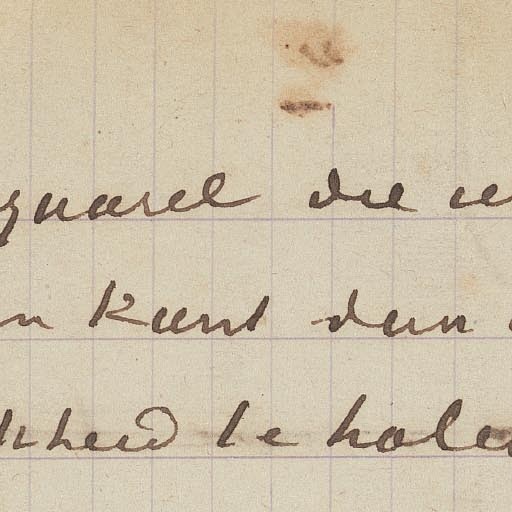 quarel die
n kunt dan
kheid te holen